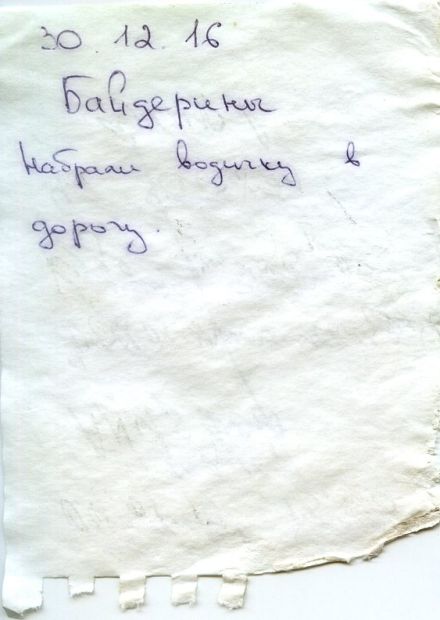 30.12.16
Байдерины
Набрали водичку в
дорогу.